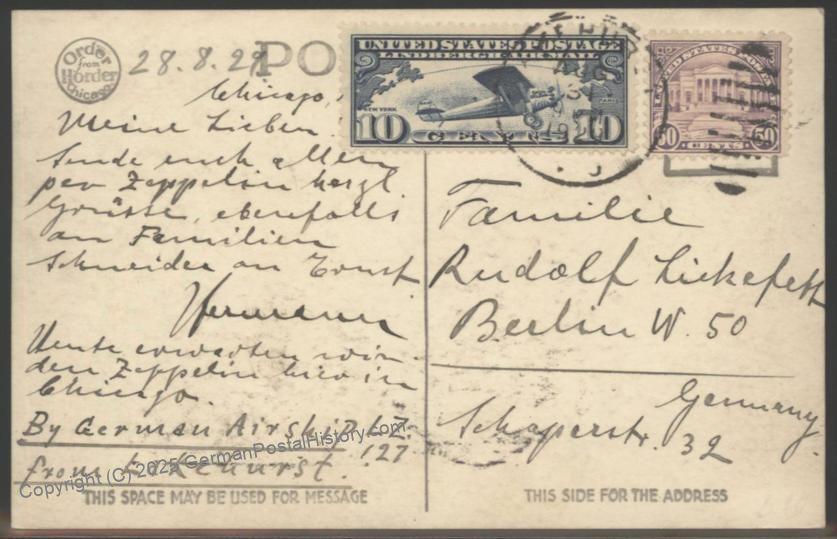 Order
from
Horder
Chicago
28.8.29
PO
Chicago,
Meine Lieben!
Sende euch allen
per Zeppelin herzl
Grüsse, ebenfalls
an Familien
Schneider an Ernst
Hermann
Heute erwarten wir
den Zeppelin hier in
Chicago.
By German Airship LZ
127
from Lakehurst.
THIS SPACE MAY BE USED FOR MESSAGE
UNITED STATES POSTAGE
LINDBERGH AIR MAIL
NEW YORK
PARIS
10 CENTS 10
AUG
UNITED STATES POSTAGE
50 CENTS 50
Familie
Rudolf Liekefett
Berlin W. 50
Germany
Schaperstr. 32
THIS SIDE FOR THE ADDRESS
Copyright (C) 2025 GermanPostalHistory.com